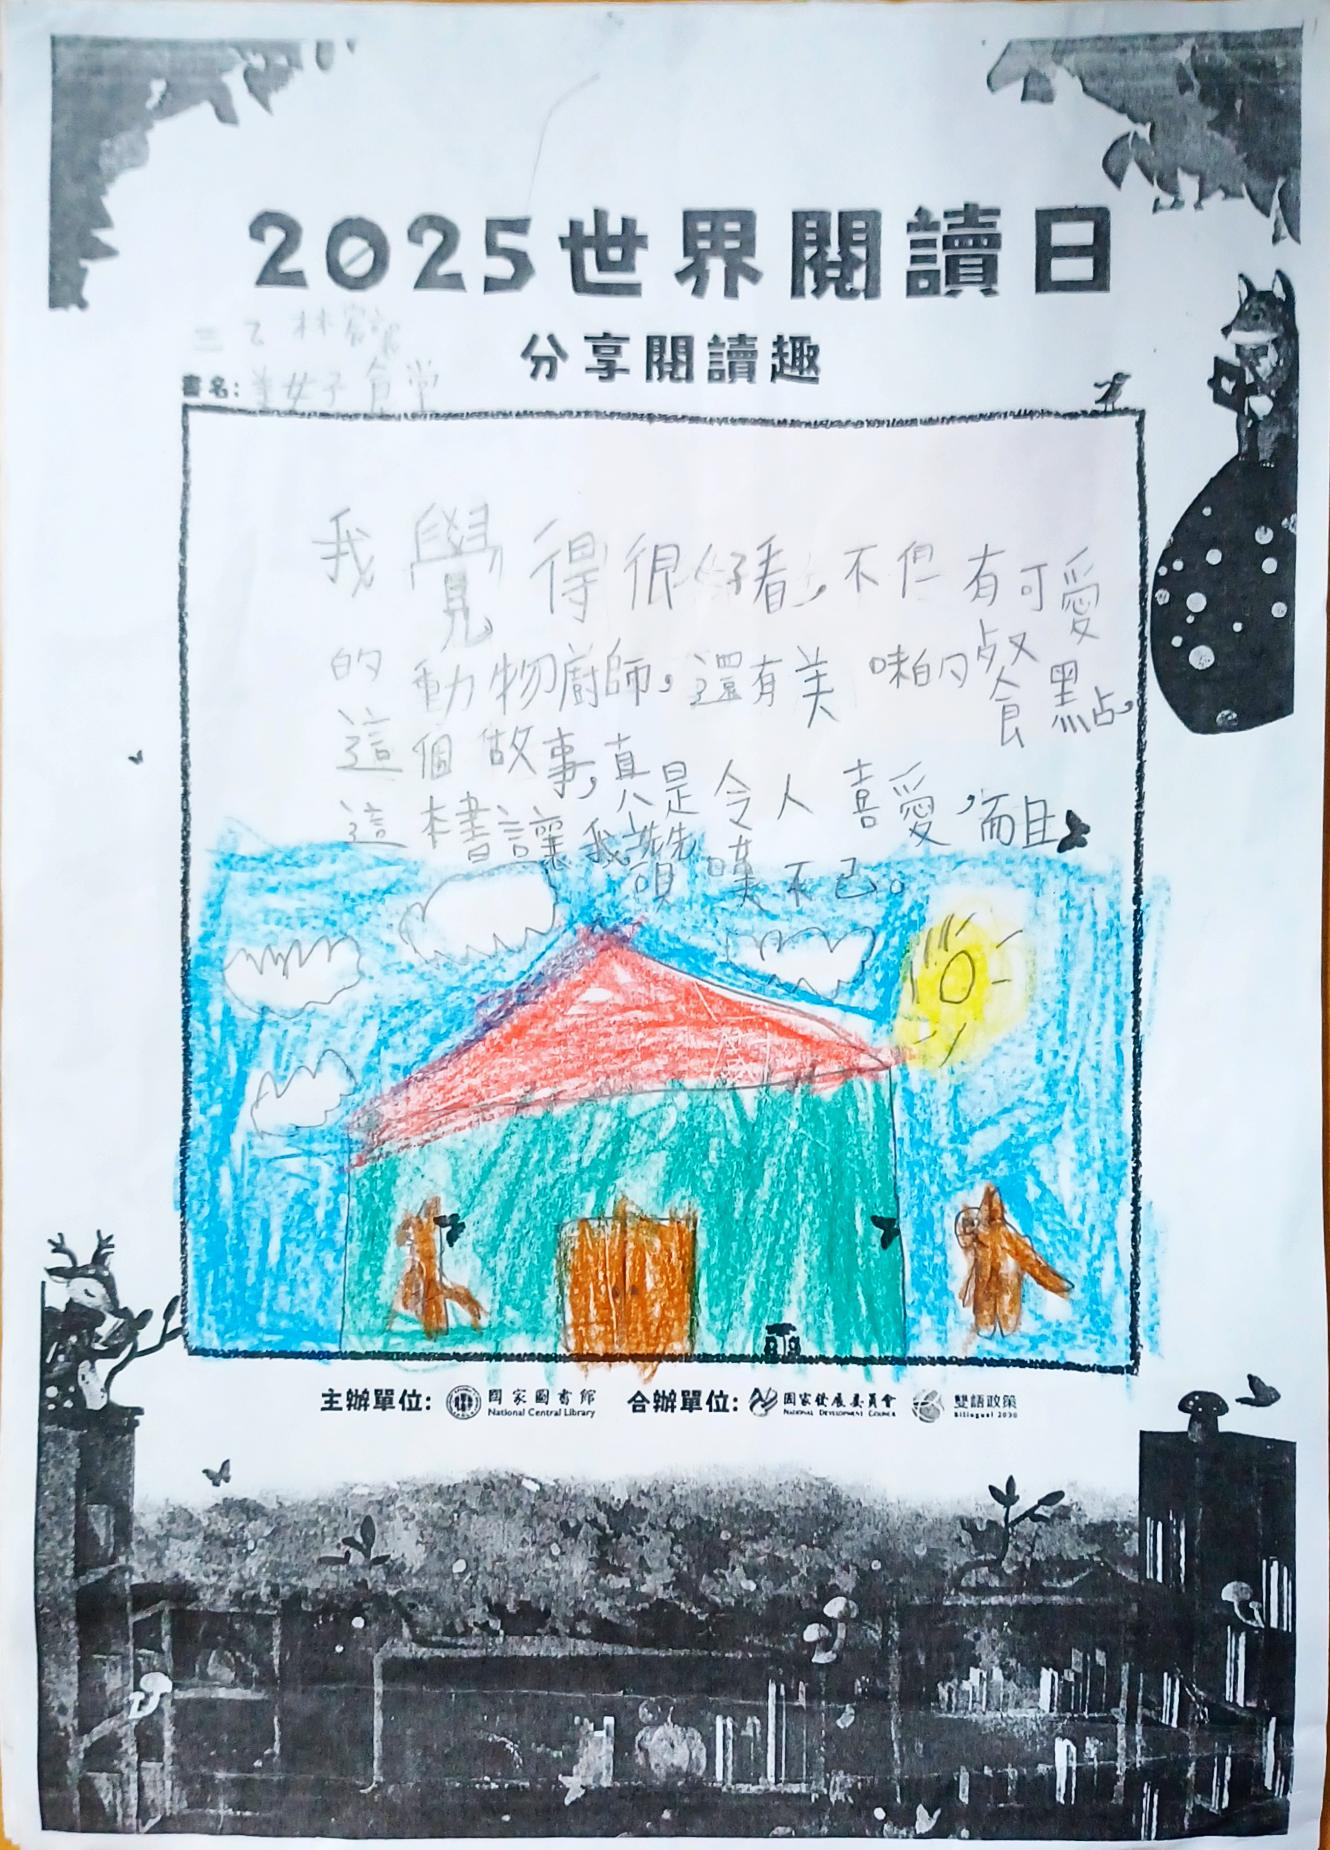 2025世界閱讀日
分享閱讀趣
三乙 林
書名: 美女子食堂
我覺得很好看,不但有可愛
的動物廚師,還有美味的餐點。
這個故事,真是令人喜愛,而且
這本書讓我讚嘆不已。
主辦單位: 國家圖書館 National Central Library 合辦單位: 國家發展委員會 National Development Council 雙語政策 Bilingual 2030